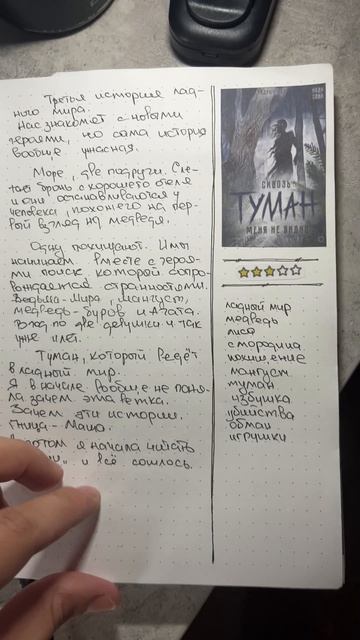 Третья история лад-
ного мира.
Нас знакомят с новыми
героями, но сама история
вообще ужасная.
Море, две подруги.
бронь с хорошего отеля
и они останавливаются у
человека, похожего на пер-
вый взгляд на медведя.
Одну похищают. И мы
начинаем вместе с героя-
ми поиск, который сопро-
вождается странностями.
Ведьма - Мира, Мангуст,
медведь - Буров и Агата.
Вход по две девушки и так
уже лет.
Туман, который ведёт
в ладный мир.
Я в начале вообще не поня-
ла зачем эта ветка.
Зачем эти истории.
Птица - Маша.
потом я начала читать
и всё сошлось.
СКВОЗЬ
ТУМАН
МЕНЯ НЕ ВИДНО
ладный мир
медведь
лиса
смородина
похищение
мангуст
туман
избушка
убийства
обман
игрушки